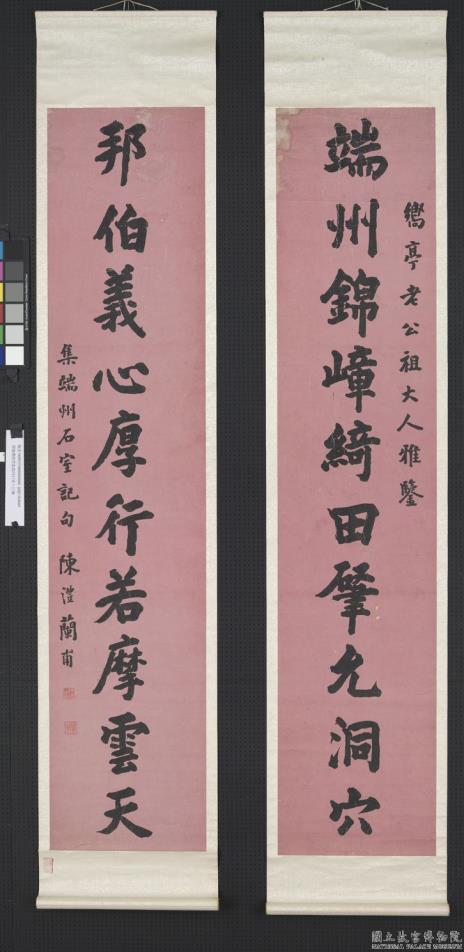 嚮亭老公祖大人雅鑒
端州錦嶂綺田肇允洞穴
邦伯義心厚行若摩雲天
集端州石室記句 陳澧蘭甫
國立故宮博物院
NATIONAL PALACE MUSEUM